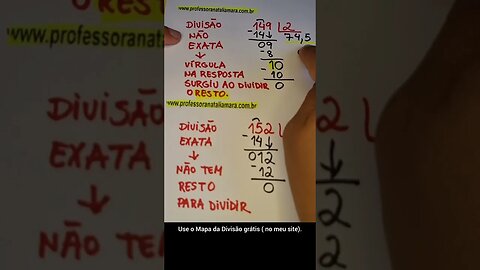 www.professoranataliamara.com.br
DIVISÃO 149 2
NÃO -14↓ 74,5
EXATA 09
↓ -8
VÍRGULA 10
NA RESPOSTA -10
SURGIU AO DIVIDIR 0
O RESTO.
www.professoranataliamara.com.br
DIVISÃO 152
EXATA -14↓
↓ 012
NÃO TEM -12
RESTO 0
PARA DIVIDIR
Use o Mapa da Divisão grátis ( no meu site).